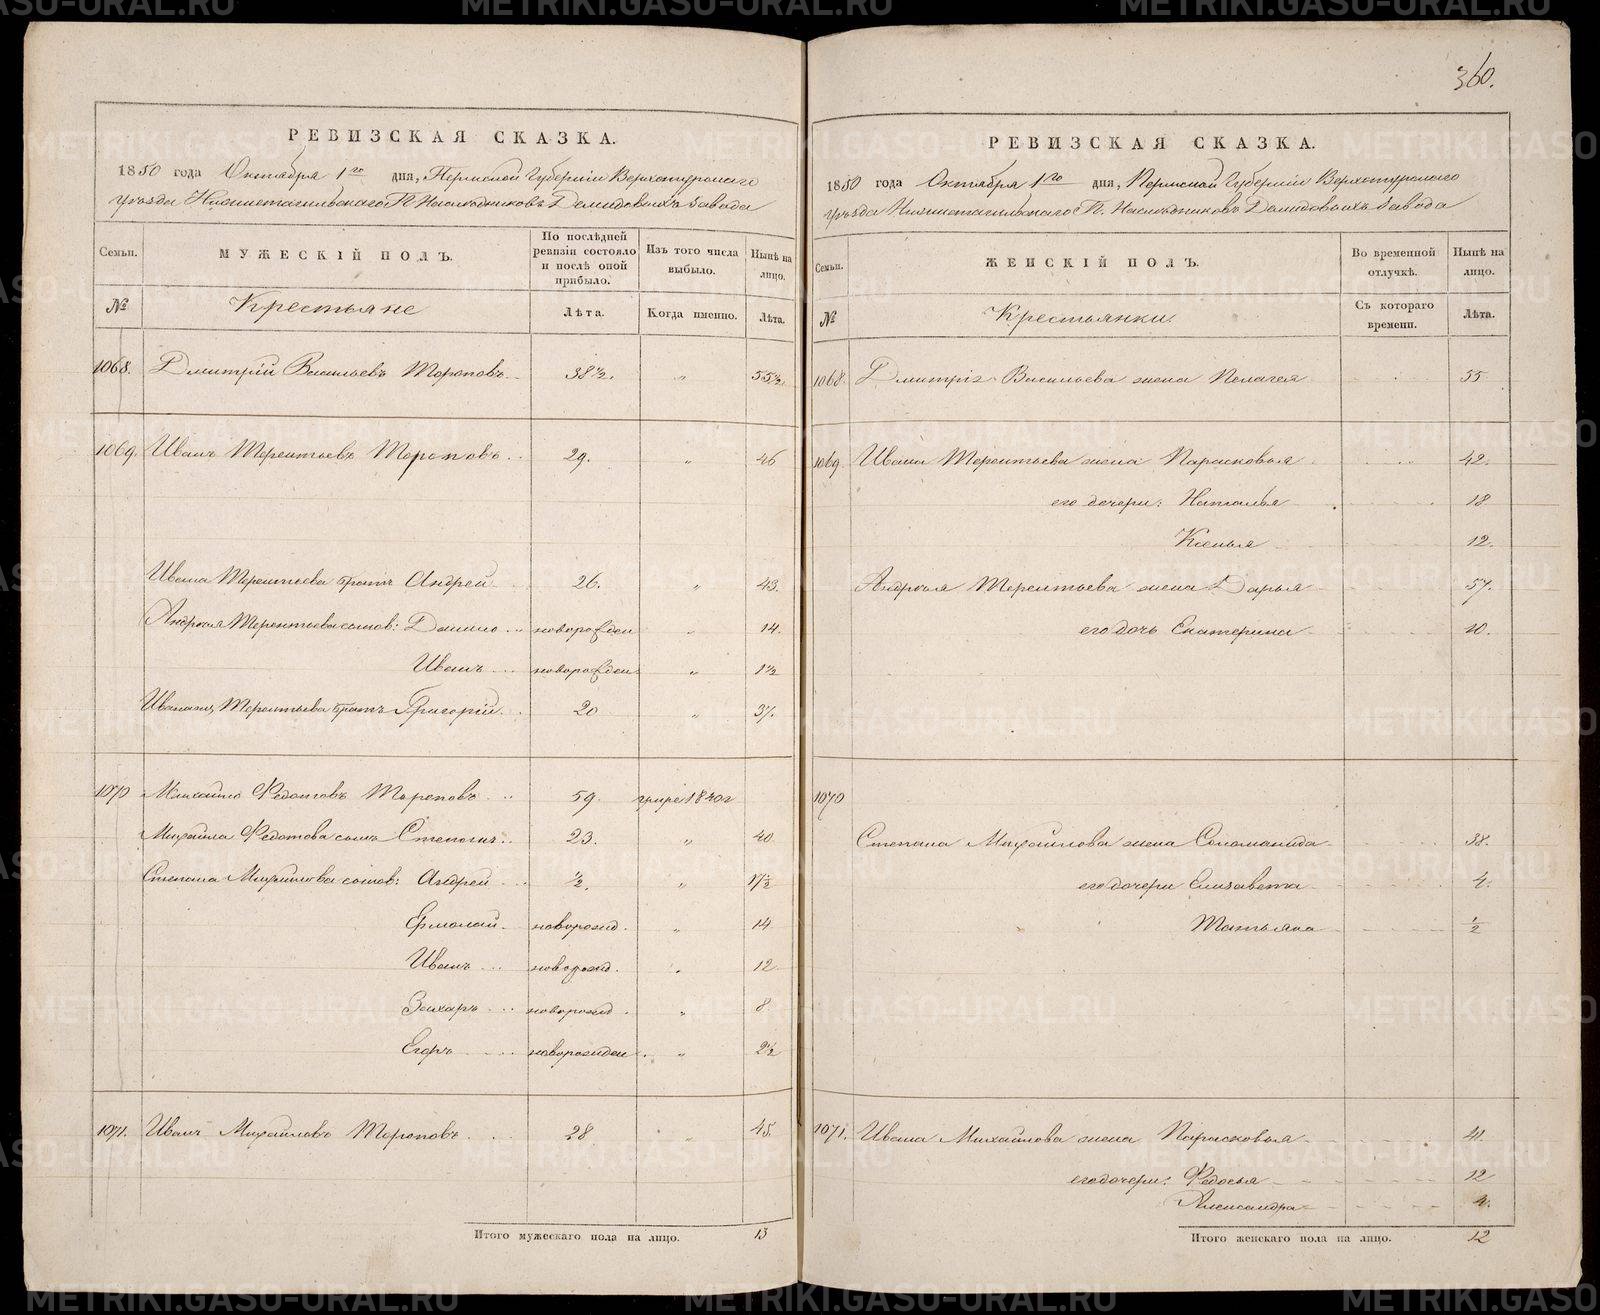 360.
РЕВИЗСКАЯ СКАЗКА.
1850 года Октября 1го дня, Пермской Губерніи Верхотурскаго
уѣзда Нижнетагильскаго П. Наслѣдниковъ Демидовыхъ завода
Семьи. МУЖЕСКІЙ ПОЛЪ. По послѣдней ревизіи состояло и послѣ оной прибыло. Изъ того числа выбыло. Нынѣ на лицо.
№ Крестьяне Лѣта. Когда именно. Лѣта.
1068. Дмитрій Васильевъ Тороповъ 38½. „ 55½.
1069. Иванъ Терентьевъ Тороповъ 29. „ 46
Ивана Терентьева братъ Андрей 26. „ 43.
Андрея Терентьева синов: Данило новорожден „ 14.
Иванъ новорожден „ 1½
Ивана Терентьева братъ Григорій 20 „ 37.
1070 Михайло Федотовъ Тороповъ 59. умре 1840г
Михайла Федотова сынъ Степанъ 23. „ 40
Степана Михайлова сынов: Андрей ½. „ 17½
Ермолай новорожд. „ 14
Иванъ новорожд. „ 12
Захаръ новорожд. „ 8
Егоръ новорожден. „ 2½
1071. Иванъ Михайловъ Тороповъ 28 „ 45.
Итого мужескаго пола на лицо. 13
РЕВИЗСКАЯ СКАЗКА.
1850 года Октября 1го дня, Пермской Губерніи Верхотурскаго
уѣзда Нижнетагильскаго П. Наслѣдниковъ Демидовыхъ завода
Семьи. ЖЕНСКІЙ ПОЛЪ. Во временной отлучкѣ. Нынѣ на лицо.
№ Крестьянки. Съ котораго времени. Лѣта.
1068. Дмитрія Васильева жена Пелагея 55
1069. Ивана Терентьева жена Парасковья 42.
его дочери: Наталья 18
Ксенья 12.
Андрея Терентьева жена Дарья 37.
его дочь Екатерина 10.
1070
Степана Михайлова жена Соломанида 38.
его дочери Елизавета 4.
Татьяна ½
1071. Ивана Михайлова жена Парасковья 41.
его дочери: Федосья 12
Александра 4.
Итого женскаго пола на лицо. 12
METRIKI.GASO-URAL.RU